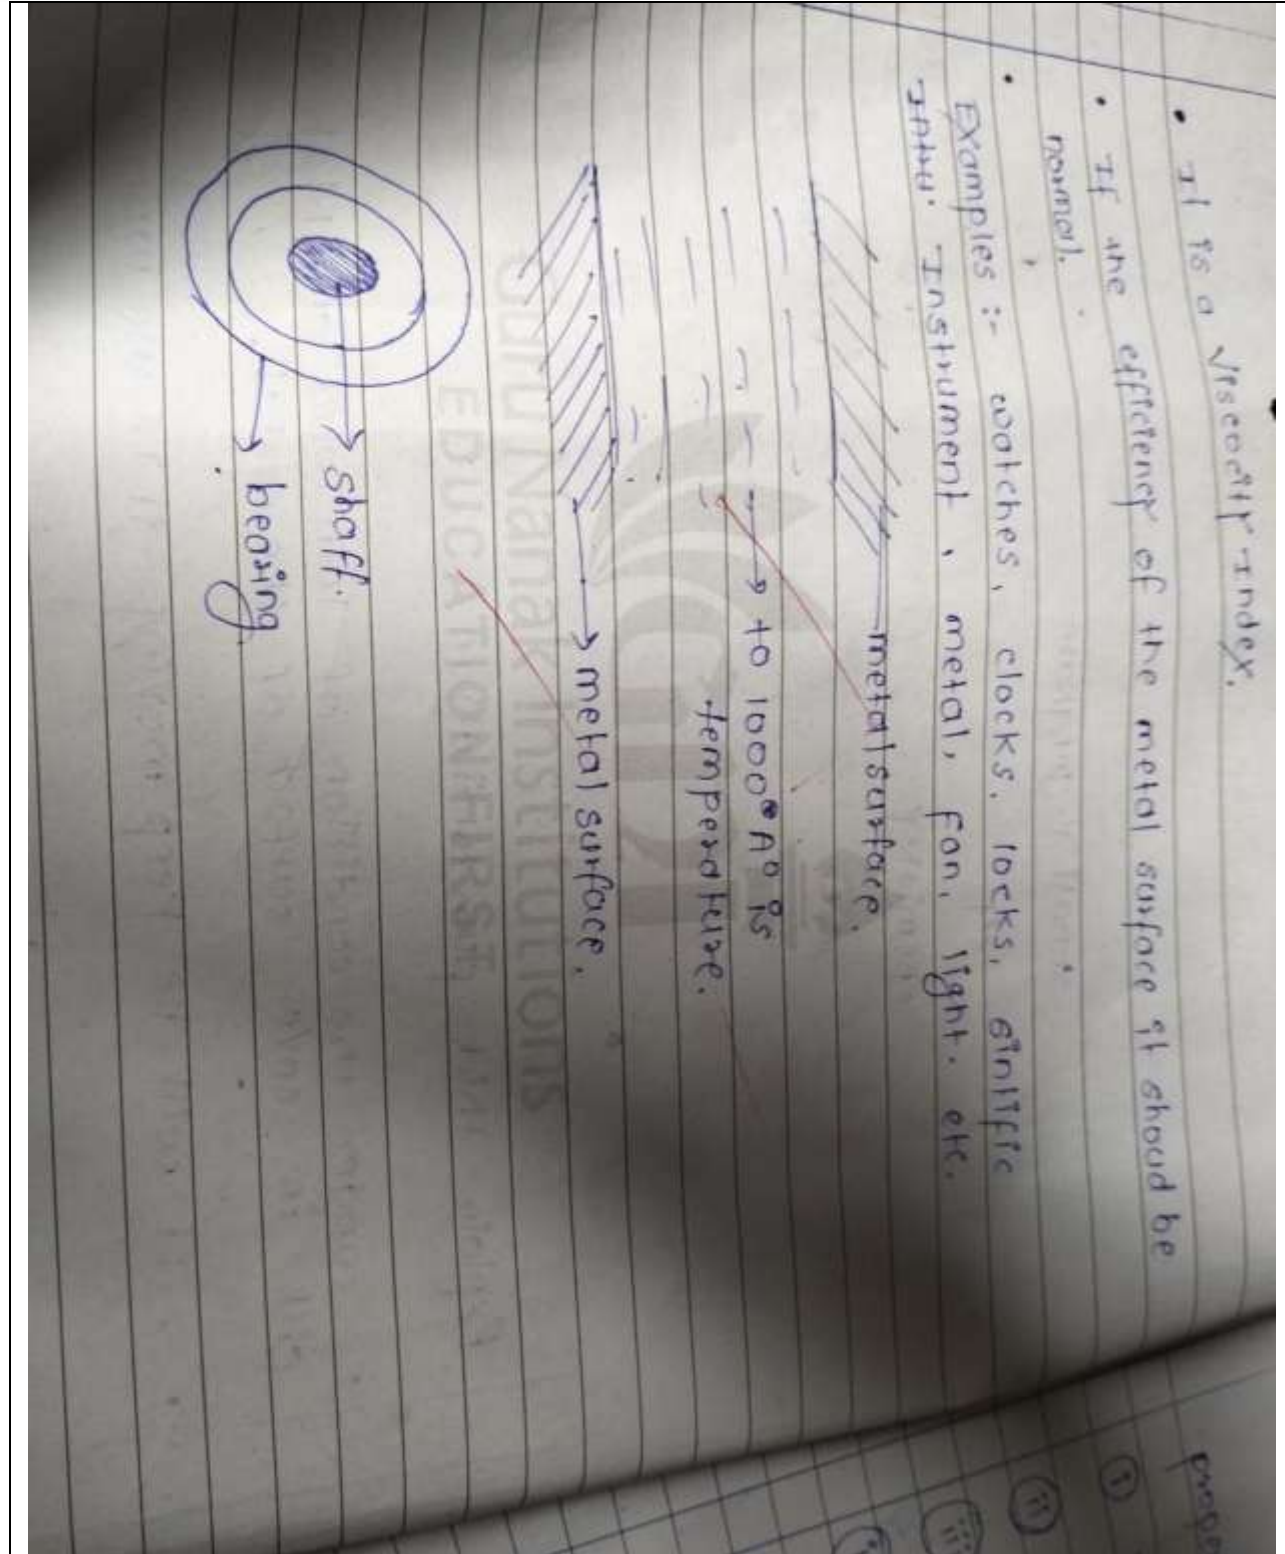 • It is a Viscocity Index.
• If the efficiency of the metal surface it shoud be
normal.
• Examples :- watches, clocks, locks, sintific
Instrument, metal, fan, light. etc.
metal surface.
→ to 1000° A° is
temperature.
→ metal surface.
Guru Nanak Institutions
EDUCATION FIRST
→ shaff.
→ bearing
prope
i
ii
iii